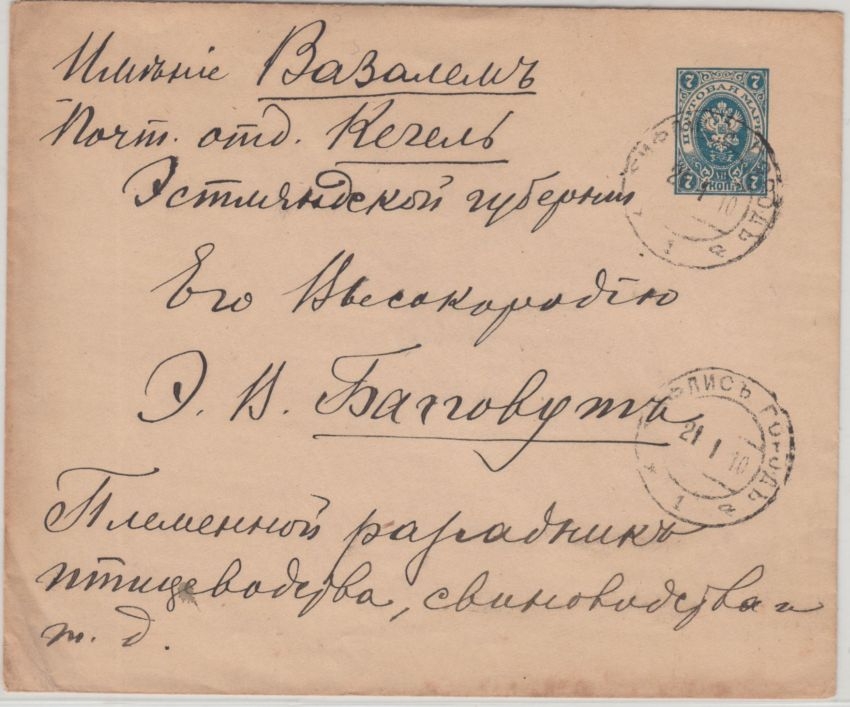 Имѣніе Вазалемъ
Почт. отд. Кегель
Эстляндской губерніи
Его Высокородію
Э. В. Багговутъ
Племенной разсадникъ
птицеводства, свиноводства и
т. д.
7 7
ПОЧТОВАЯ МАРКА
7 КОП. 7
ТИФЛИСЪ ГОРОДЪ
21 1 10
1 а
ТИФЛИСЪ ГОРОДЪ
21 1 10
1 а